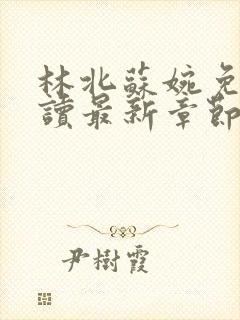 林北蘇婉免
讀最新章節
尹樹霞